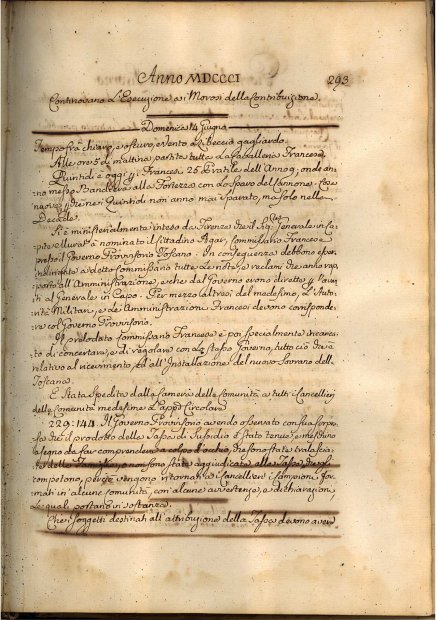 Anno MDCCCI 293
Continovano l'Esecuzione ai Morosi della Contribuzione.
Domenica 14 Giugno
Tempo fra chiaro, e oscuro, e vento Libeccio gagliardo.
Alle ore 5 di mattina partita tutta la Cavalleria Francese.
Quintidi e oggi Francese 25 Pratile dell'Anno 9, onde an
no messo Bandiera alla Fortezza con lo sparo del Cannone. Cosa
nuova, che nei Quintidi non anno mai sparato, ma solo nelle
Decadi.
Si è ministerialmente inteso da Firenze che il Sig. Generale in Ca
pite Murat à nominato il Cittadino Agar, Commissario Francese
presso il Governo Provvisorio Toscano. In conseguenza debbono essere
indirizzate a detto Commissario tutte le note, e reclami che anno rap
porto all'Amministrazione, e che dal Governo erano dirette
ti al Generale in Capo. Per mezzo altresì del medesimo, l'Autori
tà Militari, e le Amministrazioni Francesi devono corrisponde
re col Governo Provvisorio.
Il prelodato Commissario Francese è poi specialmente incarica
to di concertare, e di regolare con lo stesso Governo, tutto ciò che è
relativo al ricevimento, ed all'Installazione del nuovo Sovrano della
Toscana.
È stata spedita dalla Camera delle Comunità a tutti i Cancellieri
delle Comunità medesime l'appiè Circolare
229:144. Il Governo Provvisorio avendo osservato con sua sorpre
sa che il prodotto della Tassa di Sussidio è stato tenue, e
segno da far comprendere a colpo d'occhio, che sono state tralascia
te delle Famiglie, o non sono state aggiudicate alla Tassa, che gli
competono, perciò vengono ritornati a Cancellieri i Campioni for
mati in alcune Comunità, con alcune avvertenze, e dichiarazioni,
le quali portano in sostanza.
Che i Soggetti destinati all'attribuzione della Tassa devono avere